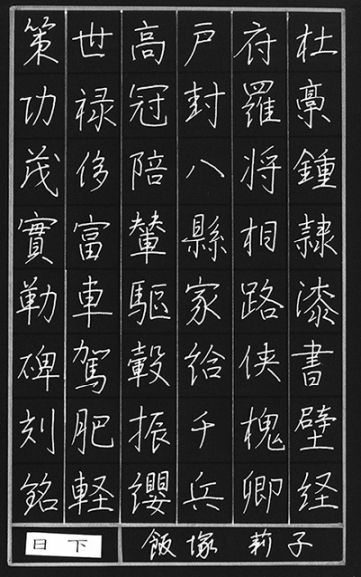 杜稾鍾隷漆書壁経
府羅将相路侠槐卿
戸封八縣家給千兵
高冠陪輦駆轂振纓
世禄侈富車駕肥軽
策功茂實勒碑刻銘
日下
飯塚莉子